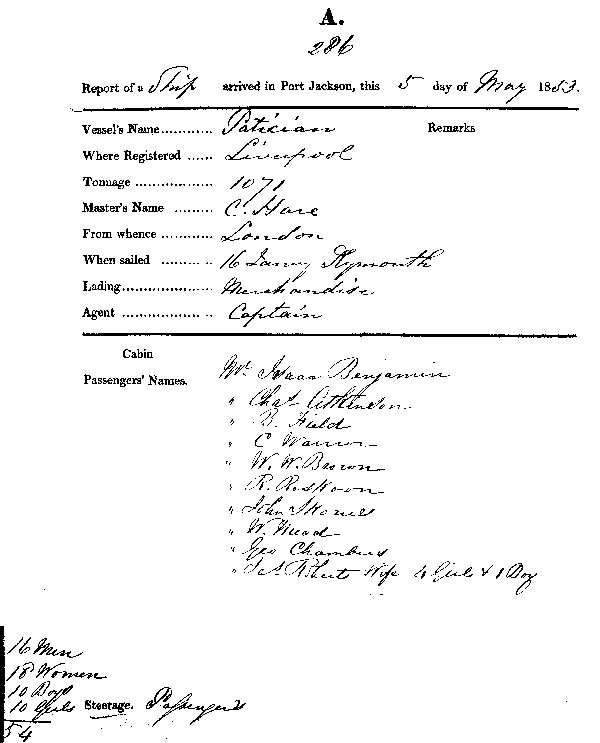 A.
286
Report of a Ship arrived in Port Jackson, this 5 day of May 1853.
Vessel's Name............ Patician Remarks
Where Registered ...... Liverpool
Tonnage .................. 1071
Master's Name ......... C. Hare
From whence ............ London
When sailed ............ 16 Jany Plymouth
Lading.................... Merchandise
Agent .................... Captain
Cabin
Passengers' Names. Mr. Isaac Benjamin
" Chas Atkinson
" B. Field
" C Warner
" W. W. Brown
" R.
" John
" W. Mead
" Geo Chambers
" Roberts Wife 4 Girls & 1 Boy
16 Men
18 Women
10 Boys
10 Girls Steerage. Passengers
54